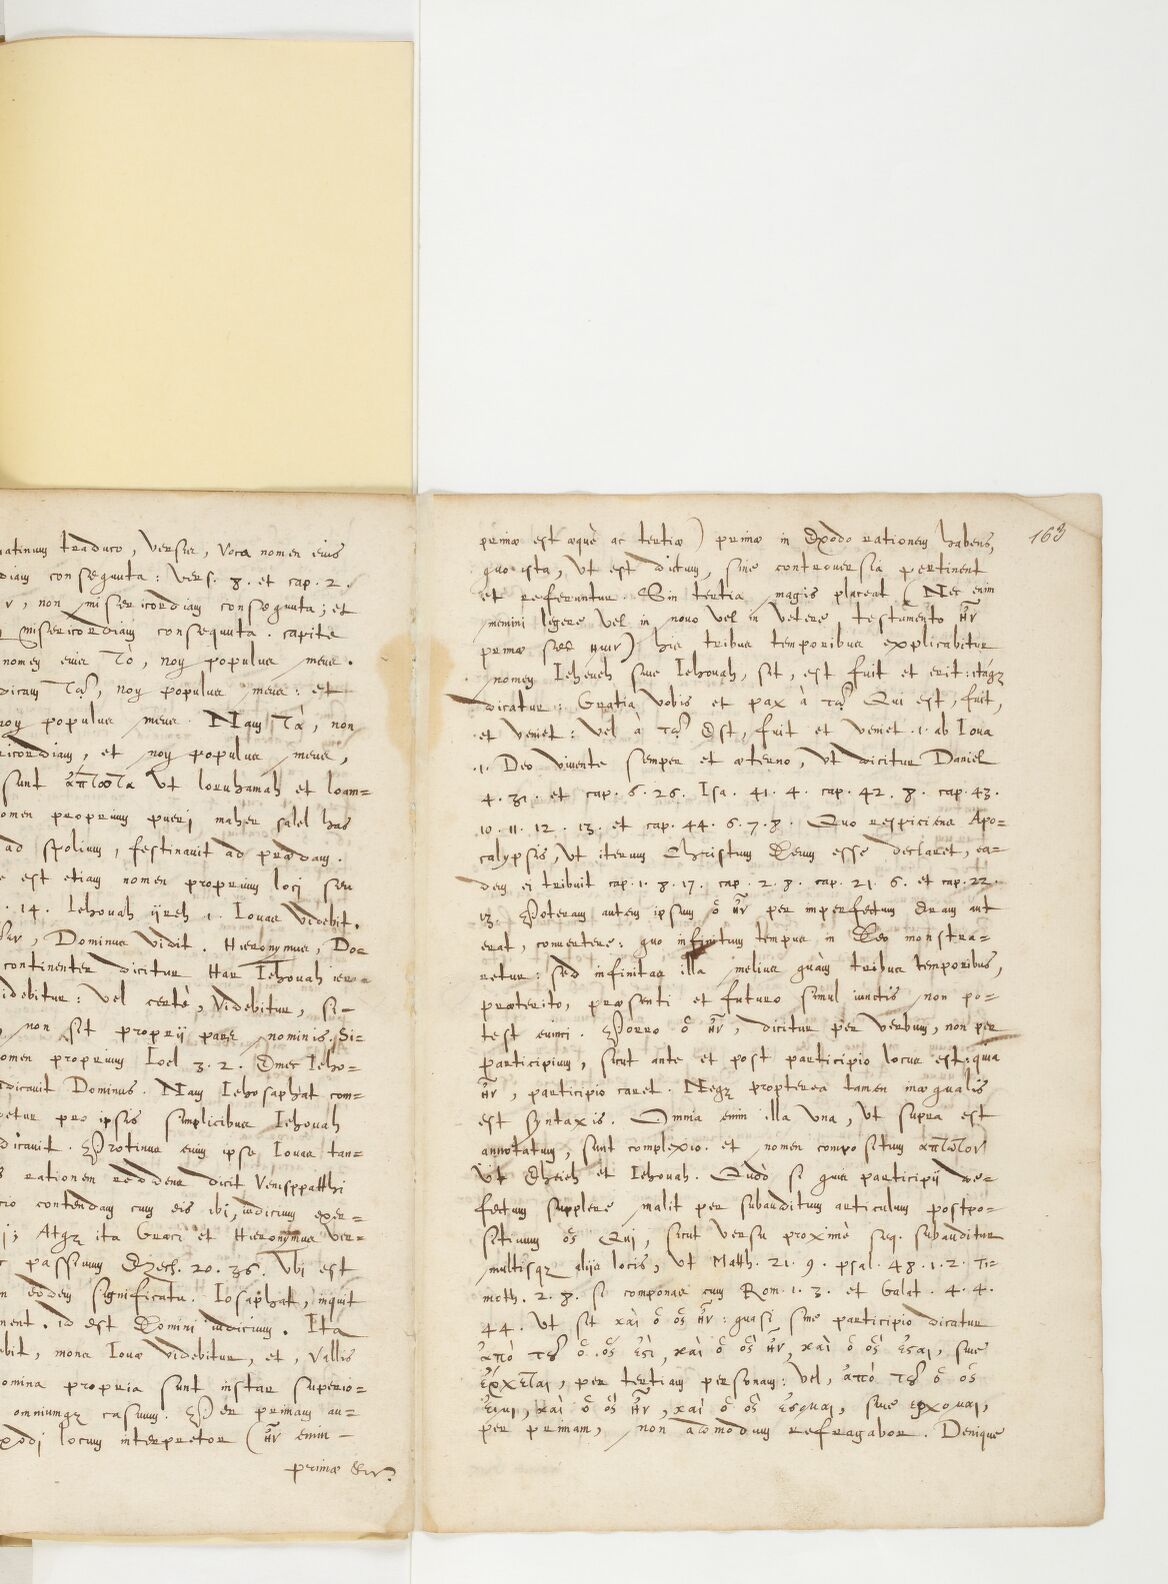 atinum traduco, versa, voca nomen eius
diam consequuta: vers. 8. et cap. 2.
, non misericordiam consequuta; et
misericordiam consequuta. capite
nomen eius Τὸ, non populus meus.
dicam Τῷ, non populus meus: et
non populus meus. Nam Τὸ, non
ricordiam, et non populus meus,
sunt ἄπτωτα Ut loruhamah et loam=
omen proprium pueri maher salel has
ad spolium, festinavit ad prædam.
est etiam nomen proprium loci seu
. 14. Iehouah ijreh .1. Iouas videbit.
, Dominus vidit. Hieronymus, Do=
continenter dicitur Har Iehouah
idebitur: vel certè, videbitur, si=
, non sit proprij pars nominis. Si=
omen proprium Ioel 3. 2. Emec Ieho=
dicauit Dominus. Nam Iehosaphat com=
etur pro ipsis simplicibus Iehouah
dicauit. Protinus enim ipse Iouas tan=
rationem reddens dicit Venisppatthi
cio contendam cum eis ibi, iudicium exer=
; Atqz ita Græci et Hieronymus ver=
passiuum Ezech. 20. 36. Ubi est
eodem significatu. Iosaphat, inquit
ment. id est Domini iudicium. Ita
ebit, mons Iouæ videbitur, et, Vallis
omina propria sunt instar superio=
omniumqz casuum. Per primam au=
xodi locum interpretor (ἦν enim =
primæ
163
primæ est æquè ac tertiæ) primæ in Exodo rationem habens,
quo ista, ut est dictum, sine controuersia pertinent
et referuntur. Sin tertia magis placeat (Nec enim
memini legere vel in nouo vel in vetere testamento ἦν
primæ sed ἤμην) his tribus temporibus explicabitur
nomen Ieheueh siue Iehouah, sit, est fuit et erit: itáqz
dicatur: Gratia vobis et pax à τῷ Qui est, fuit,
et veniet: vel à τῷ Est, fuit et veniet .1. ab Ioua
.1. Deo viuente semper et æterno, ut dicitur Daniel
4. 31. et cap. 6. 26. Isa. 41. 4. cap. 42. 8. cap. 43.
10. 11. 12. 13. et cap. 44. 6. 7. 8. Quo respiciens Apo=
calypsis, ut iterum Christum Deum esse declaret, ea=
dem ei tribuit cap. 1. 8. 17. cap. 2. 8. cap. 21. 6. et cap. 22.
13. Poteram autem ipsum ὁ ἦν per imperfectum Eram aut
erat, conuertere: quo infinitum tempus in Deo monstra=
retur: sed infinitas illa melius quàm tribus temporibus,
præterito, præsenti et futuro simul iunctis non po=
test euinci. Porro ὁ ἦν, dicitur per verbum, non per
participium, sicut ante et post participio locus est: quia
ἦν, participio caret. Neqz propterea tamen inæqualis
est syntaxis. Omnia enim illa una, ut supra est
annotatum, sunt complexio. et nomen compositum ἄπτωτον
Ut Eheieh et Iehouah. Quòd si quis participij de=
fectum supplere malit per subauditum articulum postpo=
sitiuum ὃς Qui, sicut versu proximè seq. subauditur
multisqz alijs locis, ut Matth. 21. 9. psal. 48. 1. 2. Ti=
moth. 2. 8. si componas cum Rom. 1. 3. et Galat. 4. 4.
44. Ut sit καὶ ὁ ὃς ἦν: quasi sine participio dicatur
ἀπὸ τοῦ ὁ ὃς ἐστι, καὶ ὁ ὃς ἦν, καὶ ὁ ὃς ἔσται, siue
ἔρχεται, per tertiam personam: vel, ἀπὸ τοῦ ὁ ὃς
εἰμι, καὶ ὁ ὃς ἦν, καὶ ὁ ὃς ἔσομαι, siue ἔρχομαι,
per primam, non admodum refragabor. Denique